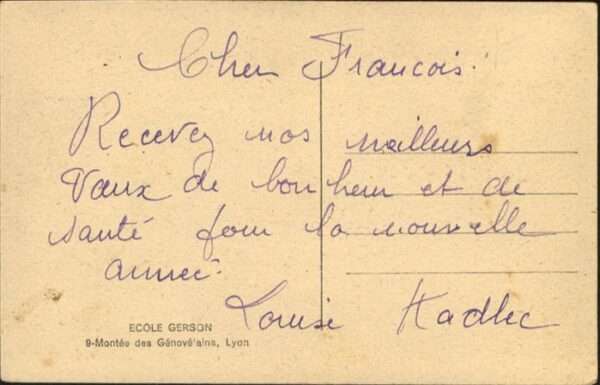 Cher Francois.
Recevez nos meilleurs
vœux de bonheur et de
santé pour la nouvelle
année.
Louise Kadlec
ECOLE GERSON
9-Montée des Génovéfains, Lyon